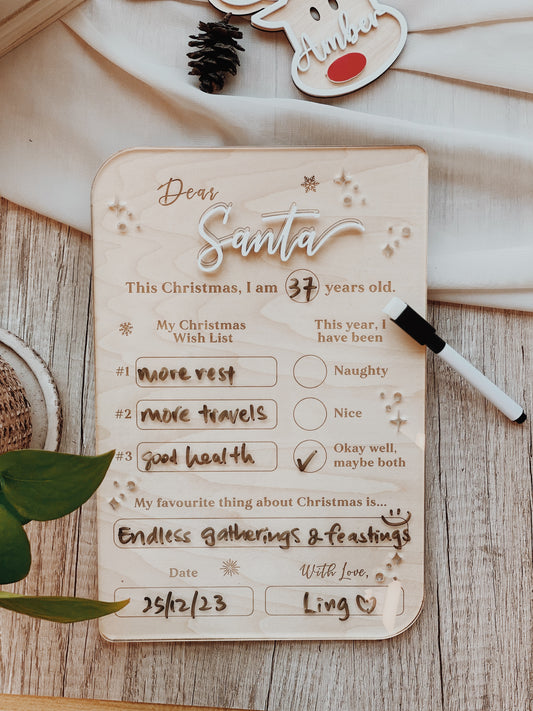 Amber
Dear
Santa
This Christmas, I am 37 years old.
My Christmas
Wish List
#1 more rest
#2 more travels
#3 good health
This year, I
have been
Naughty
Nice
Okay well,
maybe both
My favourite thing about Christmas is...
Endless gatherings & feastings
Date
25/12/23
With Love,
Ling